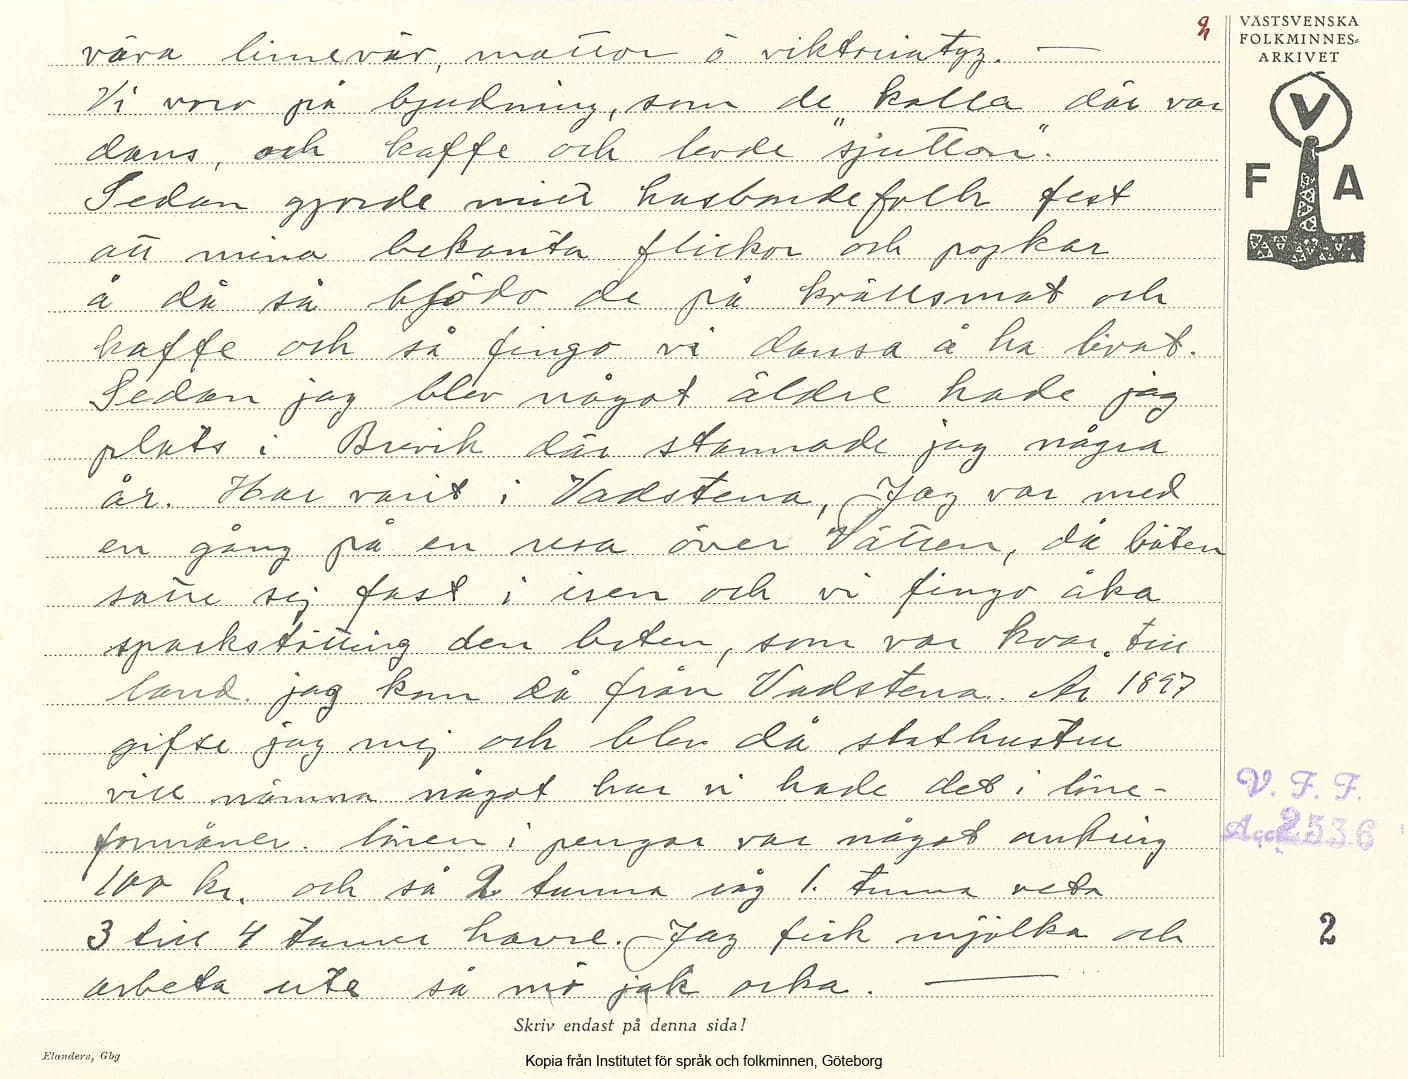 2
VÄSTSVENSKA
FOLKMINNES-
ARKIVET
V
F A
våra linnevär, mattor ö viktoriatyg. —
Vi voro på bjudning, som de kalla där var
dans, och kaffe och levde "sjutton".
Sedan gjorde mitt husbondefolk fest
att mina bekanta flickor och pojkar
å då så bjödo de på krällsmat och
kaffe och så fingo vi dansa å ha livat.
Sedan jag blev något äldre hade jag
plats i Brevik där stannade jag några
år. Har varit i Vadstena, Jag var med
en gång på en resa över Vättern, då båten
satte sig fast i isen och vi fingo åka
sparkstötting den biten, som var kvar, till
land. jag kom då från Vadstena. År 1897
gifte jag mig och blev då stathustru
vill nämna något hur vi hade det i löne-
förmåner. lönen i pengar var något omkring
100 kr. och så 2 tunna råg 1. tunna vete
3 till 4 tunnor havre. Jag fick mjölka och
arbeta ute så mö jak orka. —
V. F. F.
Acc 2536
2
Skriv endast på denna sida!
Elanders, Gbg
Kopia från Institutet för språk och folkminnen, Göteborg